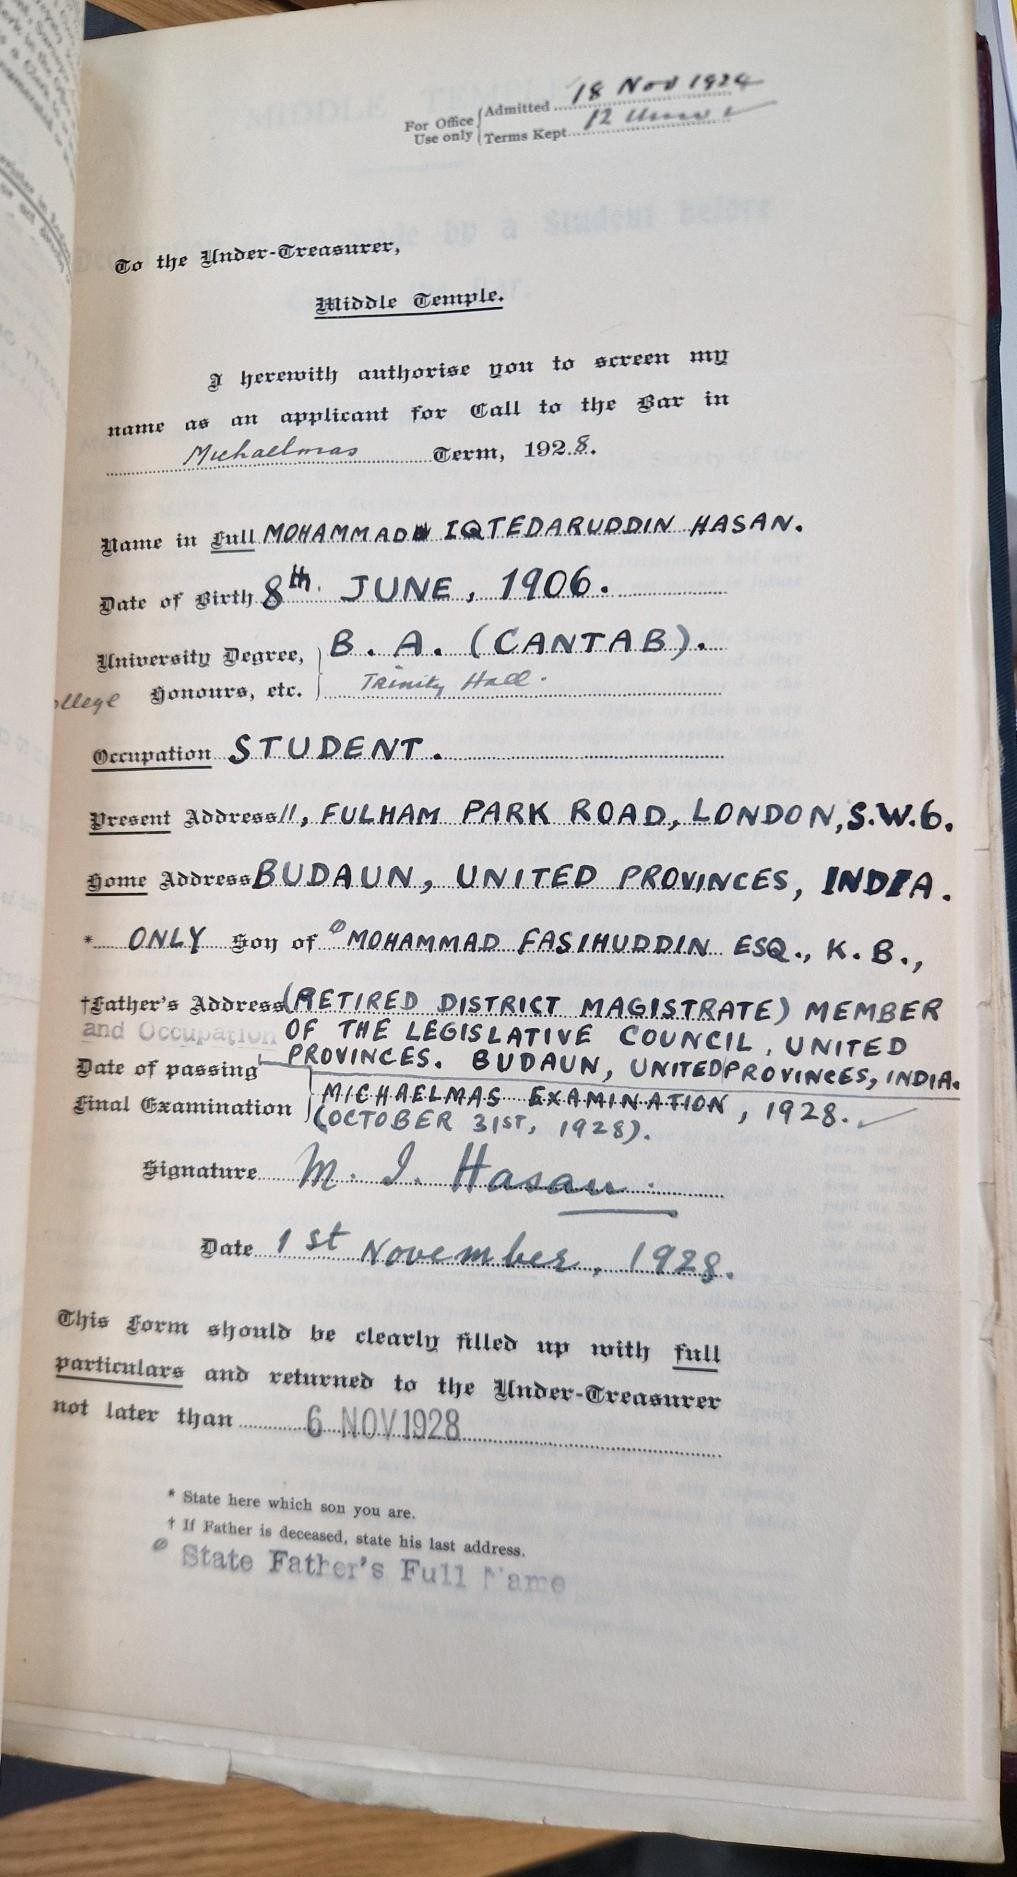 For Office Use only
Admitted 18 Nov 1924
Terms Kept 12
To the Under-Treasurer,
Middle Temple.
I herewith authorise you to screen my
name as an applicant for Call to the Bar in
Michaelmas Term, 1928.
Name in Full MOHAMMAD IQTEDARUDDIN HASAN.
Date of Birth 8th. JUNE, 1906.
University Degree, B. A. (CANTAB).
Honours, etc. Trinity Hall.
Occupation STUDENT.
Present Address 11, FULHAM PARK ROAD, LONDON, S.W.6.
Home Address BUDAUN, UNITED PROVINCES, INDIA.
* ONLY Son of ø MOHAMMAD FASIHUDDIN ESQ., K. B.,
†Father's Address (RETIRED DISTRICT MAGISTRATE) MEMBER
and Occupation OF THE LEGISLATIVE COUNCIL, UNITED
PROVINCES. BUDAUN, UNITED PROVINCES, INDIA.
Date of passing
Final Examination MICHAELMAS EXAMINATION, 1928.
(OCTOBER 31ST, 1928).
Signature M. I. Hasan.
Date 1st November, 1928.
This Form should be clearly filled up with full
particulars and returned to the Under-Treasurer
not later than 6 NOV 1928
* State here which son you are.
† If Father is deceased, state his last address.
ø State Father's Full Name